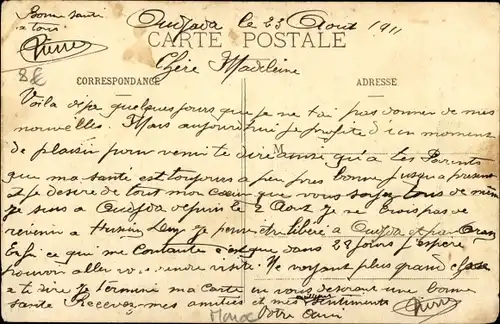 Bonne santé
a tous
Pierre
Oudjda le 23 Aout 1911
CARTE POSTALE
Chère Madeleine
8€
CORRESPONDANCE
ADRESSE
Voila deja quelques jours que je ne t'ai pas donner de mes
nouvelles. Mais aujourd'hui je profite d'un moment
M
de plaisir pour venir te dire ainsi qu'a tes Parents
que ma santé est toujours a peu pres bonne jusqu'a present
et je desire de tout mon cœur que vous soyez tous de même
je suis a Oudjda depuis le 2 Aout je ne crois pas
revenir a je pense etre libéré a Oudjda et par Oran
Enfin ce qui me contente c'est que dans 28 jours j'espère
pouvoir aller vous rendre visite. Ne voyant plus grand chose
a te dire je termine ma Carte en vous desirant une bonne
santé Recevez mes amitiés et mes meilleurs sentiments
Votre ami
Pierre
Maroc